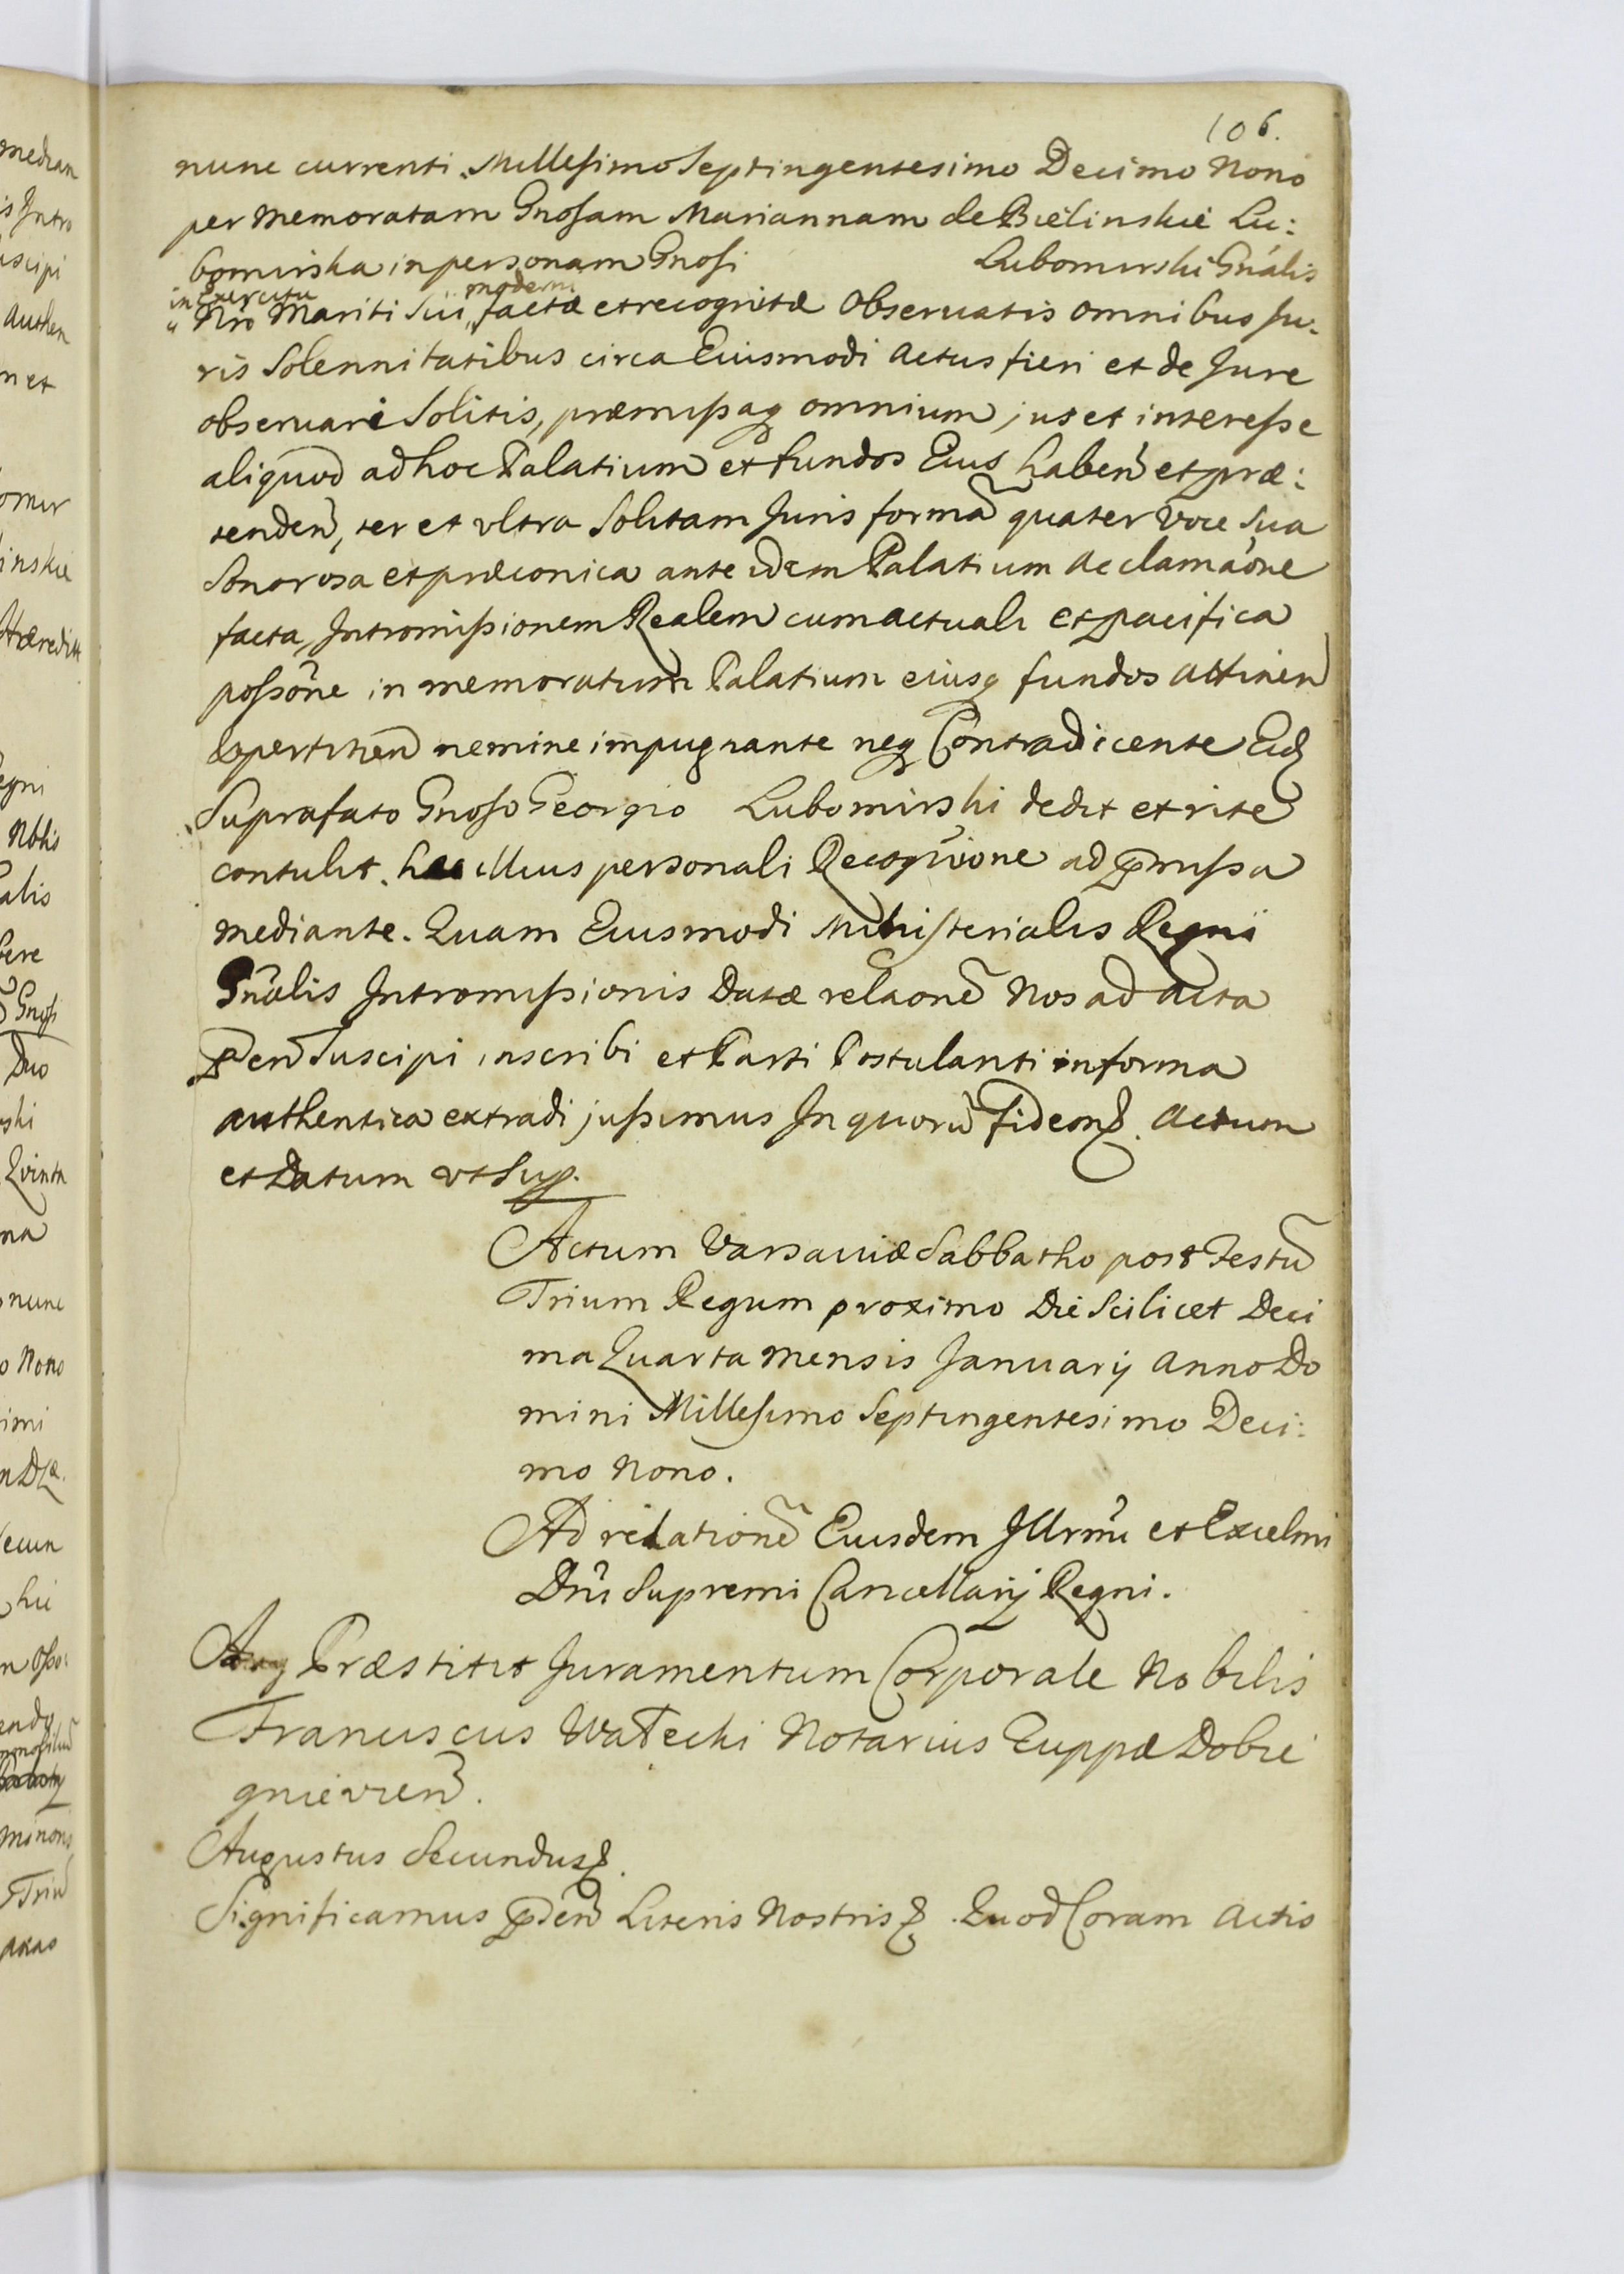 106.
nunc currenti Millesimo Septingentesimo Decimo Nono
per memoratam Gnosam Mariannam de Bielinskie Lu:
bomirska in personam Gnosi Lubomirski Gnalis
in Exercitu moderni
Nro Mariti Sui factæ et recognitæ Observatis omnibus Ju-
ris Solennitatibus circa Eiusmodi Actus fieri et de Jure
observari Solitis, præmissaq omnium jus et interesse
aliquod ad hoc Palatium et fundos Eius haben et præ:
tenden, ter et ultra Solitam Juris formã quater voce Sua
Sonorosa et præconica ante idem Palatium Acclamaõne
facta, Intromissionem Realem cum actuali et pacifica
possõne in memoratum Palatium eiusq fundos Attinen
& pertinen nemine impugnante neq Contradicente Eid
Suprafato Gnoso Georgio Lubomirski dedit et rite
contulit. hac illius personali Recogniõne ad præmissa
mediante. Quam Eiusmodi Ministerialis Regni
Gnalis Intromissionis Datæ relaonẽ Nos ad Acta
pñden Suscipi inscribi et Parti Postulanti in forma
authentica extradi jussimus In quorũ fidem&. Actum
et Datum ut Sup.
Actum Varsaviæ Sabbatho post Festũ
Trium Regum proximo Die Scilicet Deci
ma Quarta Mensis Januarij Anno Do
mini Millesimo Septingentesimo Deci:
mo Nono.
Ad relationẽ Eiusdem Illrmi et Excelmi
Dni Supremi Cancellarij Regni.
Præstitit Juramentum Corporale Nobilis
Franciscus Notarius Cuppæ Dobie
gnievien.
Augustus Secundus&.
Significamus pñden Literis Nostris &. Quod Coram Actis